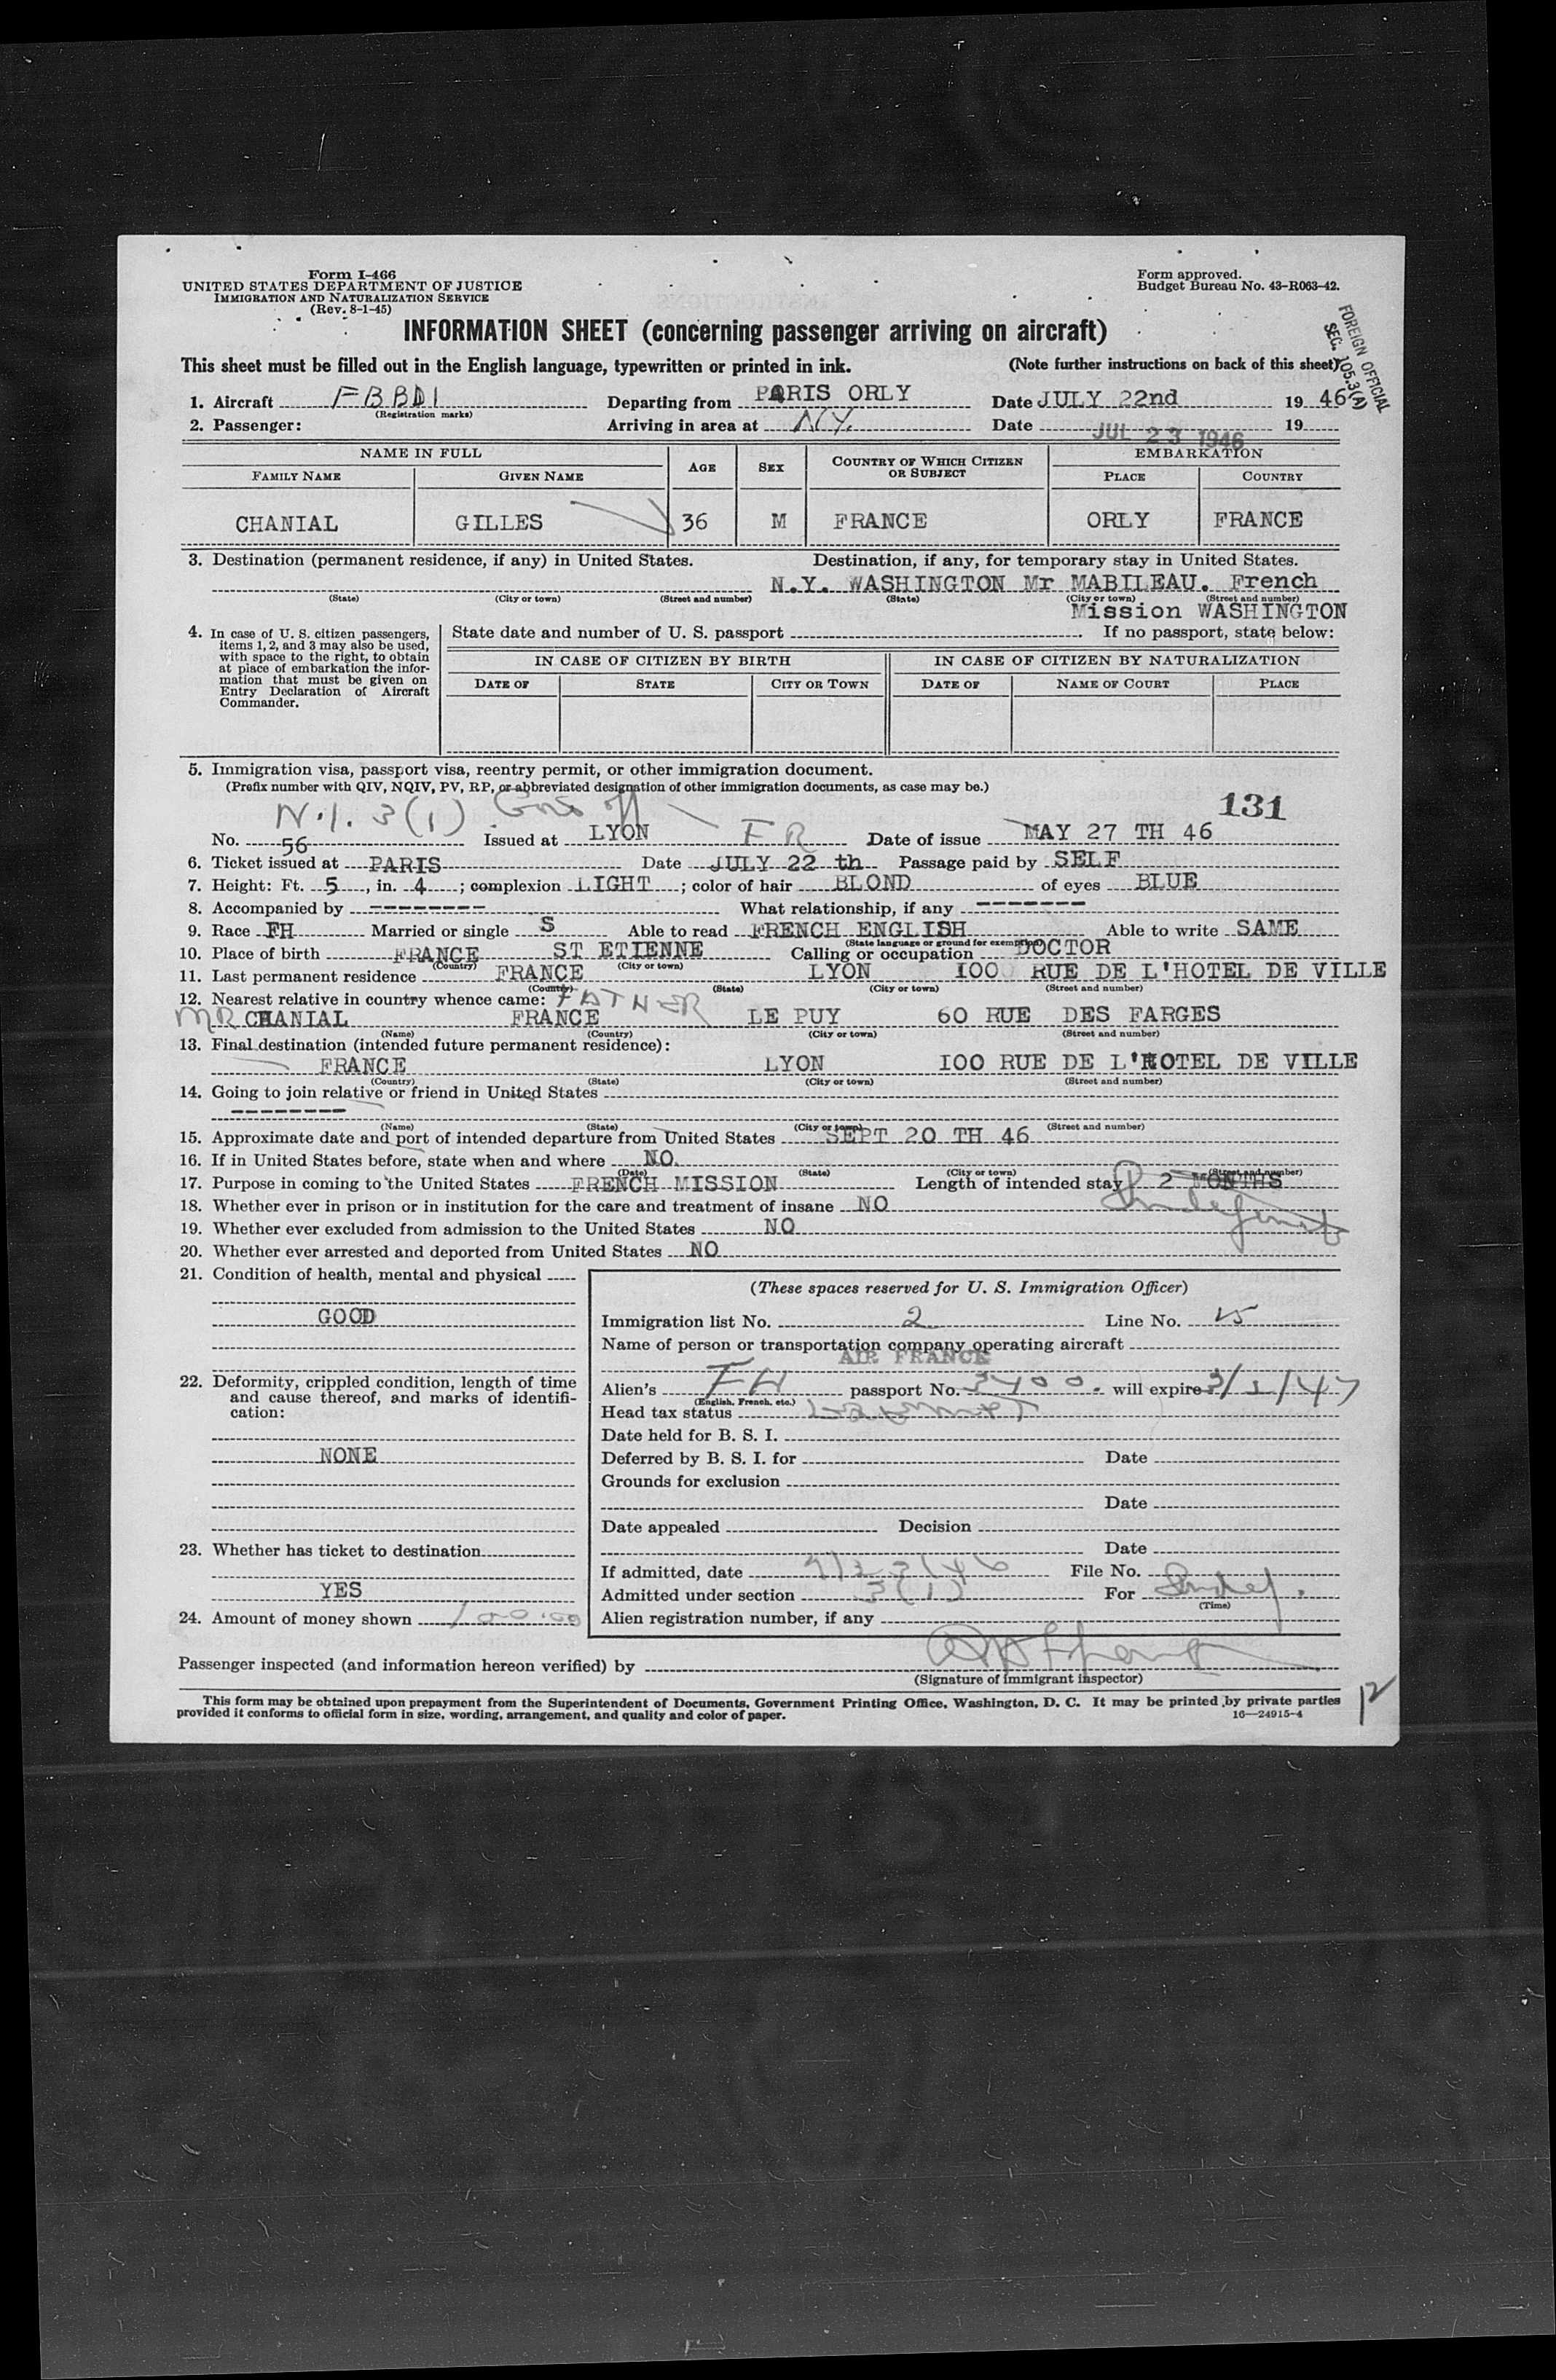 Form I-466
UNITED STATES DEPARTMENT OF JUSTICE
IMMIGRATION AND NATURALIZATION SERVICE
(Rev. 8-1-45)
Form approved.
Budget Bureau No. 43-R063-42.
FOREIGN OFFICIAL
SEC. 105.3(A)
INFORMATION SHEET (concerning passenger arriving on aircraft)
This sheet must be filled out in the English language, typewritten or printed in ink. (Note further instructions on back of this sheet)
1. Aircraft FBBDI Departing from PARIS ORLY Date JULY 22nd 19 46
(Registration marks)
2. Passenger: Arriving in area at N.Y. Date JUL 23 1946 19
NAME IN FULL AGE SEX COUNTRY OF WHICH CITIZEN OR SUBJECT EMBARKATION
FAMILY NAME GIVEN NAME PLACE COUNTRY
CHANIAL GILLES 36 M FRANCE ORLY FRANCE
3. Destination (permanent residence, if any) in United States. Destination, if any, for temporary stay in United States.
N.Y. WASHINGTON Mr MABILEAU. French
(State) (City or town) (Street and number) (State) (City or town) (Street and number)
Mission WASHINGTON
4. In case of U. S. citizen passengers, items 1, 2, and 3 may also be used, with space to the right, to obtain at place of embarkation the information that must be given on Entry Declaration of Aircraft Commander.
State date and number of U. S. passport . If no passport, state below:
IN CASE OF CITIZEN BY BIRTH IN CASE OF CITIZEN BY NATURALIZATION
DATE OF STATE CITY OR TOWN DATE OF NAME OF COURT PLACE
5. Immigration visa, passport visa, reentry permit, or other immigration document.
(Prefix number with QIV, NQIV, PV, RP, or abbreviated designation of other immigration documents, as case may be.)
3(1) 131
No. 56 Issued at LYON FR Date of issue MAY 27 TH 46
6. Ticket issued at PARIS Date JULY 22 th Passage paid by SELF
7. Height: Ft. 5, in. 4; complexion LIGHT; color of hair BLOND of eyes BLUE
8. Accompanied by -------- What relationship, if any --------
9. Race FH Married or single S Able to read FRENCH ENGLISH Able to write SAME
(State language or ground for exemption)
10. Place of birth FRANCE ST ETIENNE Calling or occupation DOCTOR
(Country) (City or town)
11. Last permanent residence FRANCE LYON I00 RUE DE L'HOTEL DE VILLE
(Country) (State) (City or town) (Street and number)
12. Nearest relative in country whence came: FATHER
MR CHANIAL FRANCE LE PUY 60 RUE DES FARGES
(Name) (Country) (City or town) (Street and number)
13. Final destination (intended future permanent residence):
FRANCE LYON I00 RUE DE L'HOTEL DE VILLE
(Country) (State) (City or town) (Street and number)
14. Going to join relative or friend in United States
--------
(Name) (State) (City or town) (Street and number)
15. Approximate date and port of intended departure from United States SEPT 20 TH 46
16. If in United States before, state when and where NO.
(Date) (State) (City or town) (Street and number)
17. Purpose in coming to the United States FRENCH MISSION Length of intended stay 2 MONTHS
18. Whether ever in prison or in institution for the care and treatment of insane NO
19. Whether ever excluded from admission to the United States NO
20. Whether ever arrested and deported from United States NO
21. Condition of health, mental and physical
GOOD
22. Deformity, crippled condition, length of time and cause thereof, and marks of identification:
NONE
23. Whether has ticket to destination
YES
24. Amount of money shown 100.00
(These spaces reserved for U. S. Immigration Officer)
Immigration list No. 2 Line No.
Name of person or transportation company operating aircraft
AIR FRANCE
Alien's FH passport No. 3400. will expire 3/1/47
(English, French, etc.)
Head tax status
Date held for B. S. I.
Deferred by B. S. I. for Date
Grounds for exclusion
Date
Date appealed Decision
Date
If admitted, date 7/23/46 File No.
Admitted under section 3(1) For
(Time)
Alien registration number, if any
Passenger inspected (and information hereon verified) by
(Signature of immigrant inspector)
This form may be obtained upon prepayment from the Superintendent of Documents, Government Printing Office, Washington, D. C. It may be printed by private parties
provided it conforms to official form in size, wording, arrangement, and quality and color of paper. 16—24915-4
12